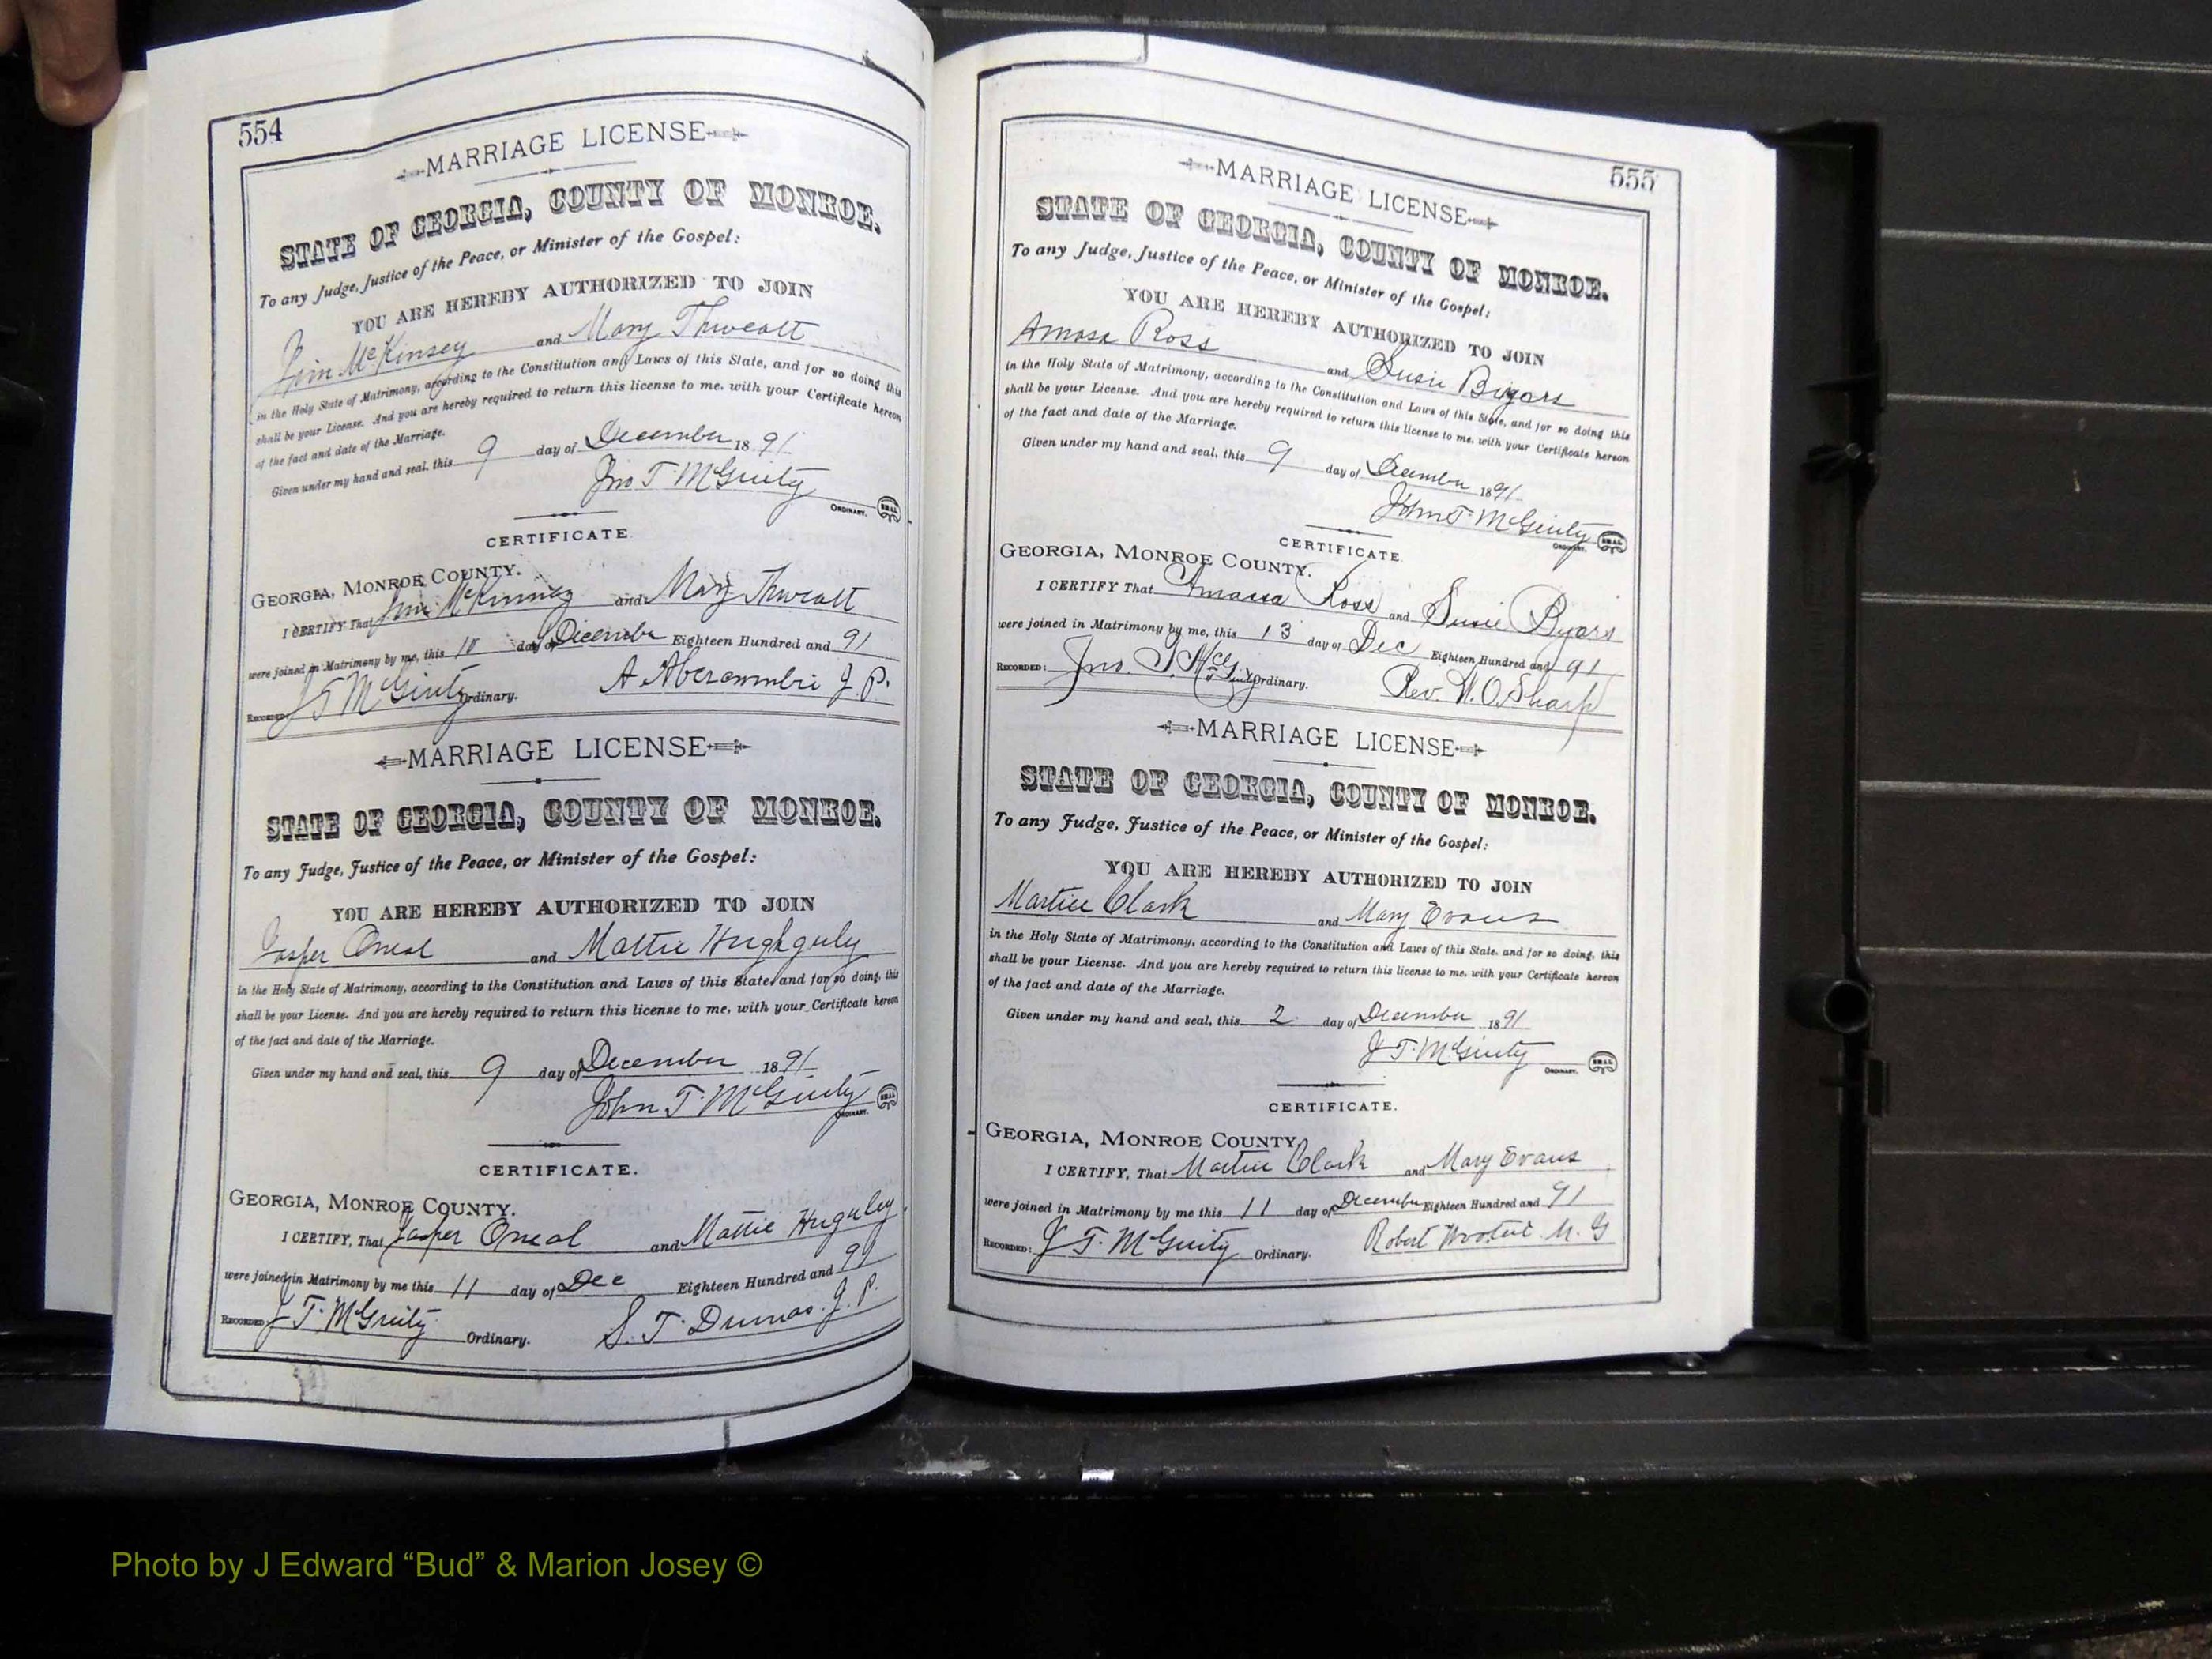 554
MARRIAGE LICENSE
STATE OF GEORGIA, COUNTY OF MONROE.
To any Judge, Justice of the Peace, or Minister of the Gospel:
YOU ARE HEREBY AUTHORIZED TO JOIN
Jim McKinsey and Mary Thweatt
in the Holy State of Matrimony, according to the Constitution and Laws of this State, and for so doing this
shall be your License. And you are hereby required to return this license to me, with your Certificate hereon
of the fact and date of the Marriage.
Given under my hand and seal, this 9 day of December 1891
Jno T McGinty
ORDINARY. SEAL
CERTIFICATE
GEORGIA, MONROE COUNTY.
I CERTIFY That Jim McKinney and Mary Thweatt
were joined in Matrimony by me, this 10 day of December Eighteen Hundred and 91
RECORDED J T McGinty Ordinary. A. Abercrombie J. P.
MARRIAGE LICENSE
STATE OF GEORGIA, COUNTY OF MONROE.
To any Judge, Justice of the Peace, or Minister of the Gospel:
YOU ARE HEREBY AUTHORIZED TO JOIN
Jasper Oneal and Mattie Hughguly
in the Holy State of Matrimony, according to the Constitution and Laws of this State, and for so doing, this
shall be your License. And you are hereby required to return this license to me, with your Certificate hereon
of the fact and date of the Marriage.
Given under my hand and seal, this 9 day of December 1891
John T. McGinty
ORDINARY. SEAL
CERTIFICATE.
GEORGIA, MONROE COUNTY.
I CERTIFY, That Jasper Oneal and Mattie Huguley
were joined in Matrimony by me this 11 day of Dec Eighteen Hundred and 91
RECORDED J T. McGinty Ordinary. S. T. Dumas. J. P.
555
MARRIAGE LICENSE
STATE OF GEORGIA, COUNTY OF MONROE.
To any Judge, Justice of the Peace, or Minister of the Gospel:
YOU ARE HEREBY AUTHORIZED TO JOIN
Amasa Ross and Susie Byars
in the Holy State of Matrimony, according to the Constitution and Laws of this State, and for so doing this
shall be your License. And you are hereby required to return this license to me, with your Certificate hereon
of the fact and date of the Marriage.
Given under my hand and seal, this 9 day of December 1891
John T. McGinty
ORDINARY. SEAL
CERTIFICATE
GEORGIA, MONROE COUNTY.
I CERTIFY That Amasa Ross and Susie Byars
were joined in Matrimony by me, this 13 day of Dec Eighteen Hundred and 91
RECORDED: Jno. T. McGinty Ordinary. Rev. W. O. Sharp
MARRIAGE LICENSE
STATE OF GEORGIA, COUNTY OF MONROE.
To any Judge, Justice of the Peace, or Minister of the Gospel:
YOU ARE HEREBY AUTHORIZED TO JOIN
Clark and Mary Evans
in the Holy State of Matrimony, according to the Constitution and Laws of this State, and for so doing, this
shall be your License. And you are hereby required to return this license to me, with your Certificate hereon
of the fact and date of the Marriage.
Given under my hand and seal, this 2 day of December 1891
J T. McGinty
ORDINARY. SEAL
CERTIFICATE.
GEORGIA, MONROE COUNTY
I CERTIFY, That Clark and Mary Evans
were joined in Matrimony by me this 11 day of December Eighteen Hundred and 91
RECORDED: J T. McGinty Ordinary. Robert M. G
Photo by J Edward “Bud” & Marion Josey ©